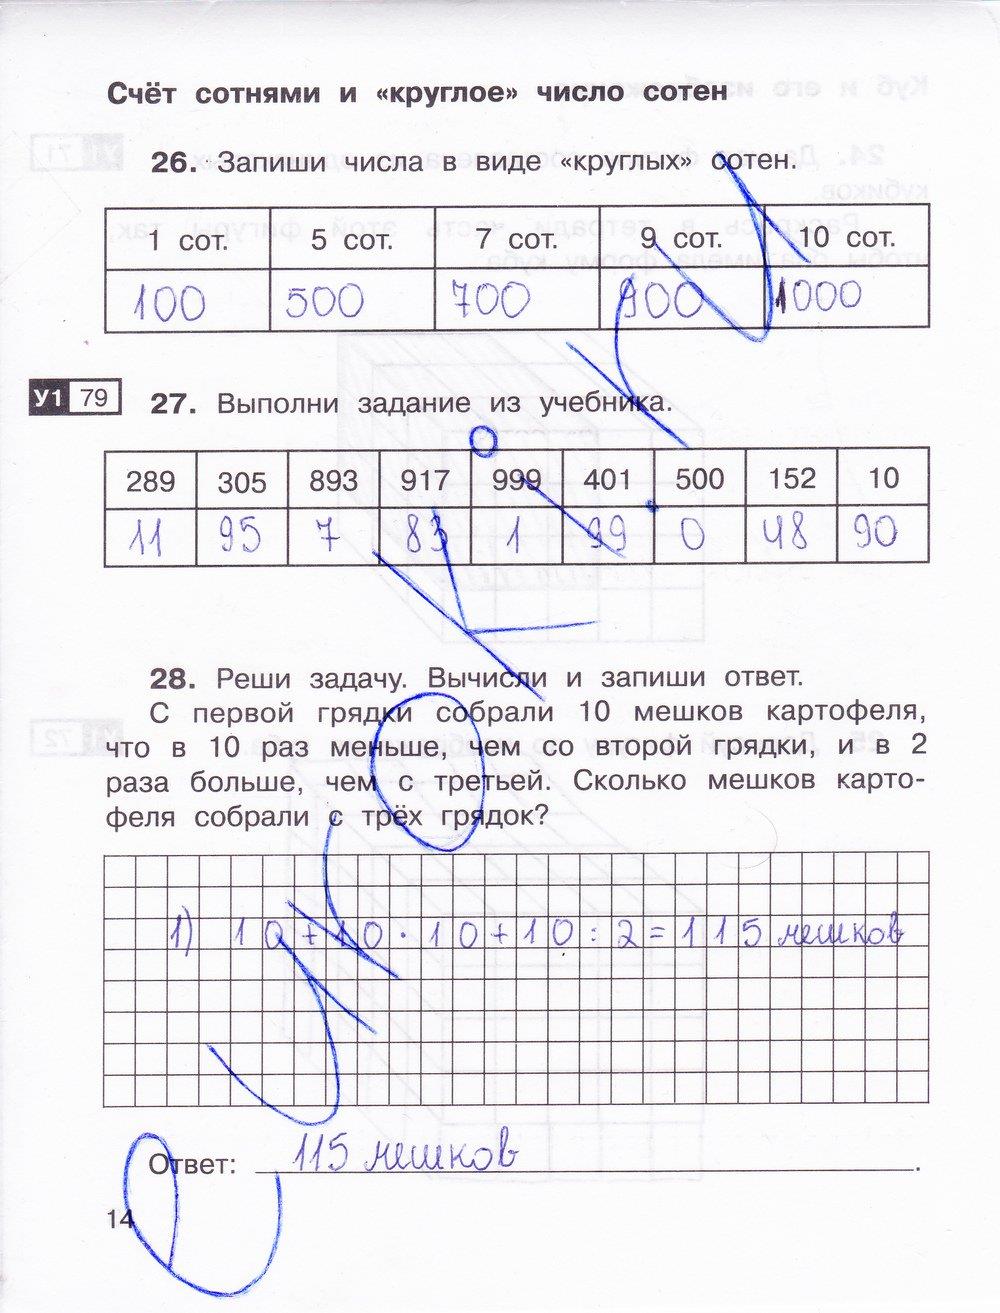 Счёт сотнями и «круглое» число сотен
26. Запиши числа в виде «круглых» сотен.
1 сот. 5 сот. 7 сот. 9 сот. 10 сот.
100 500 700 900 1000
У1 79
27. Выполни задание из учебника.
289 305 893 917 999 401 500 152 10
11 95 7 83 1 99 0 48 90
28. Реши задачу. Вычисли и запиши ответ.
С первой грядки собрали 10 мешков картофеля,
что в 10 раз меньше, чем со второй грядки, и в 2
раза больше, чем с третьей. Сколько мешков карто-
феля собрали с трёх грядок?
1) 10+10·10+10:2=115 мешков
Ответ: 115 мешков.
14